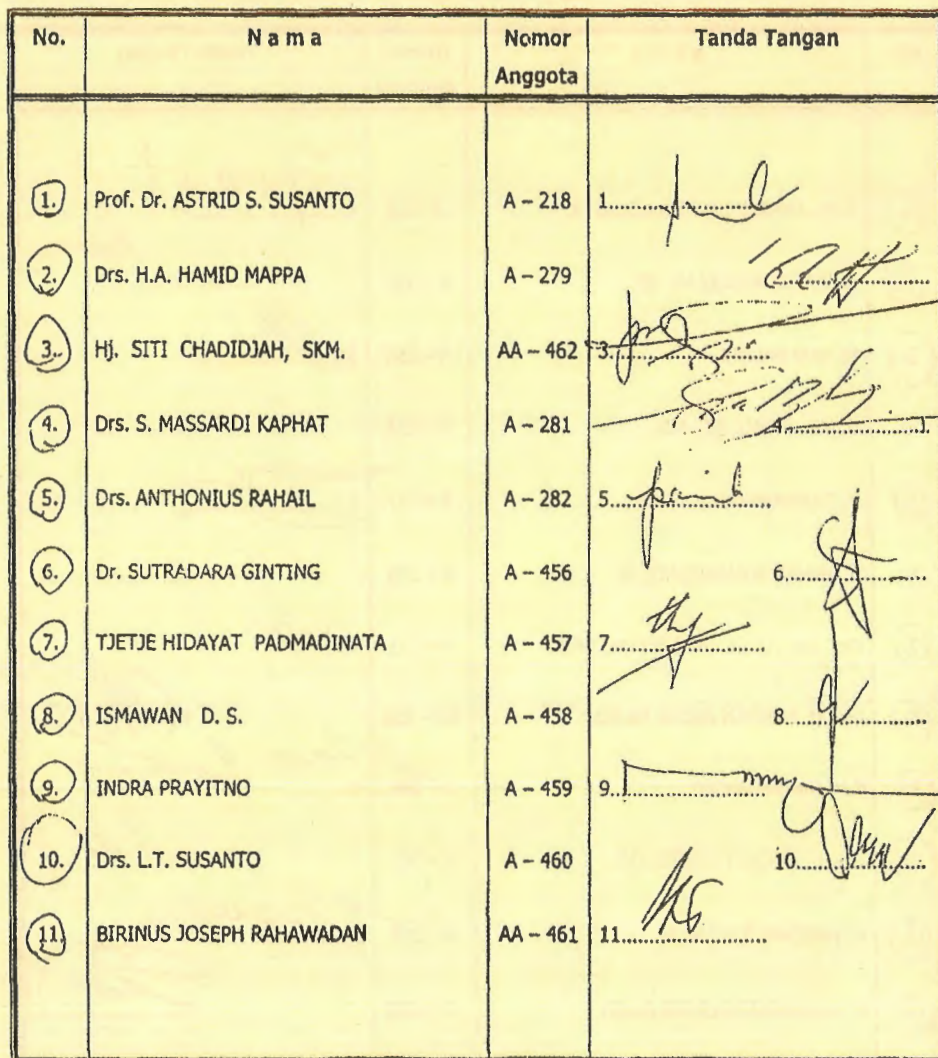 No. N a m a Nomor Anggota Tanda Tangan
1. Prof. Dr. ASTRID S. SUSANTO A – 218 1..................
2. Drs. H.A. HAMID MAPPA A – 279 2..................
3. Hj. SITI CHADIDJAH, SKM. AA – 462 3..................
4. Drs. S. MASSARDI KAPHAT A – 281 4..................
5. Drs. ANTHONIUS RAHAIL A – 282 5..................
6. Dr. SUTRADARA GINTING A – 456 6..................
7. TJETJE HIDAYAT PADMADINATA A – 457 7..................
8. ISMAWAN D. S. A – 458 8..................
9. INDRA PRAYITNO A – 459 9..................
10. Drs. L.T. SUSANTO A – 460 10..................
11. BIRINUS JOSEPH RAHAWADAN AA – 461 11..................